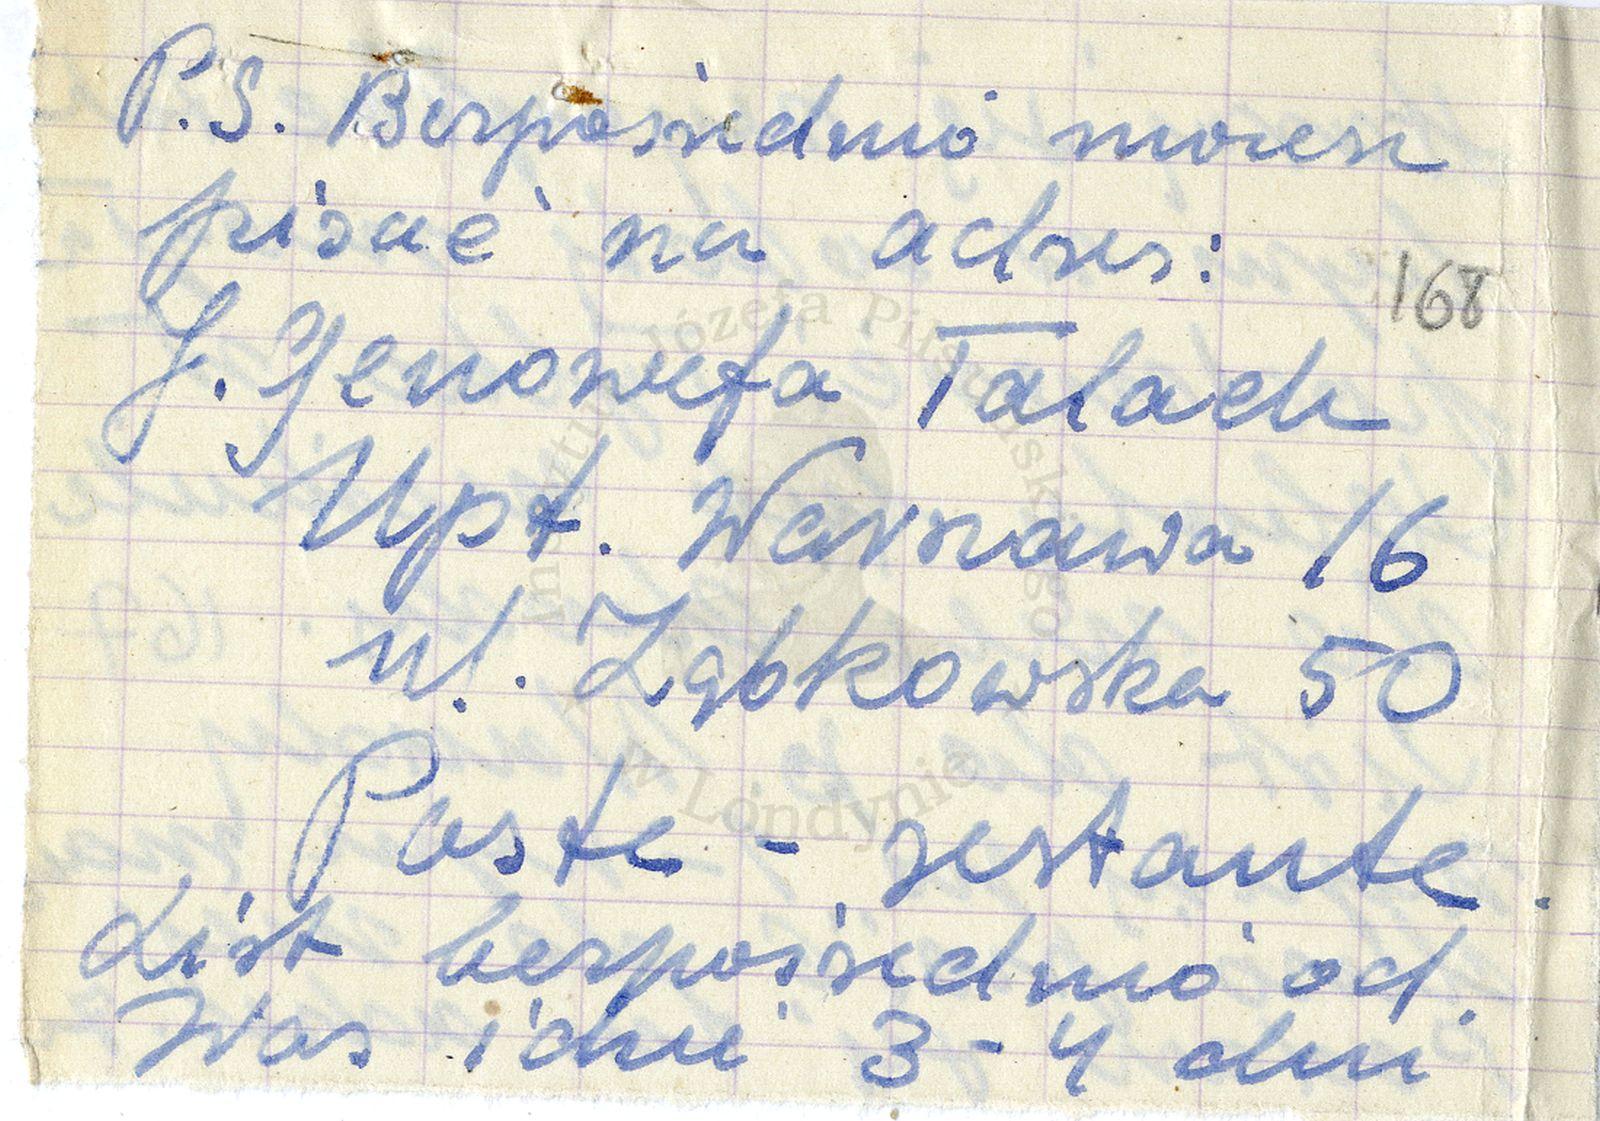 P.S. Bezpośrednio możesz
pisać na adres:
168
J. Genowefa Talach
Upt. Warszawa 16
ul. Ząbkowska 50
Poste - restante.
List bezpośrednio od
Was idzie 3-4 dni
Instytut Józefa Piłsudskiego
w Londynie